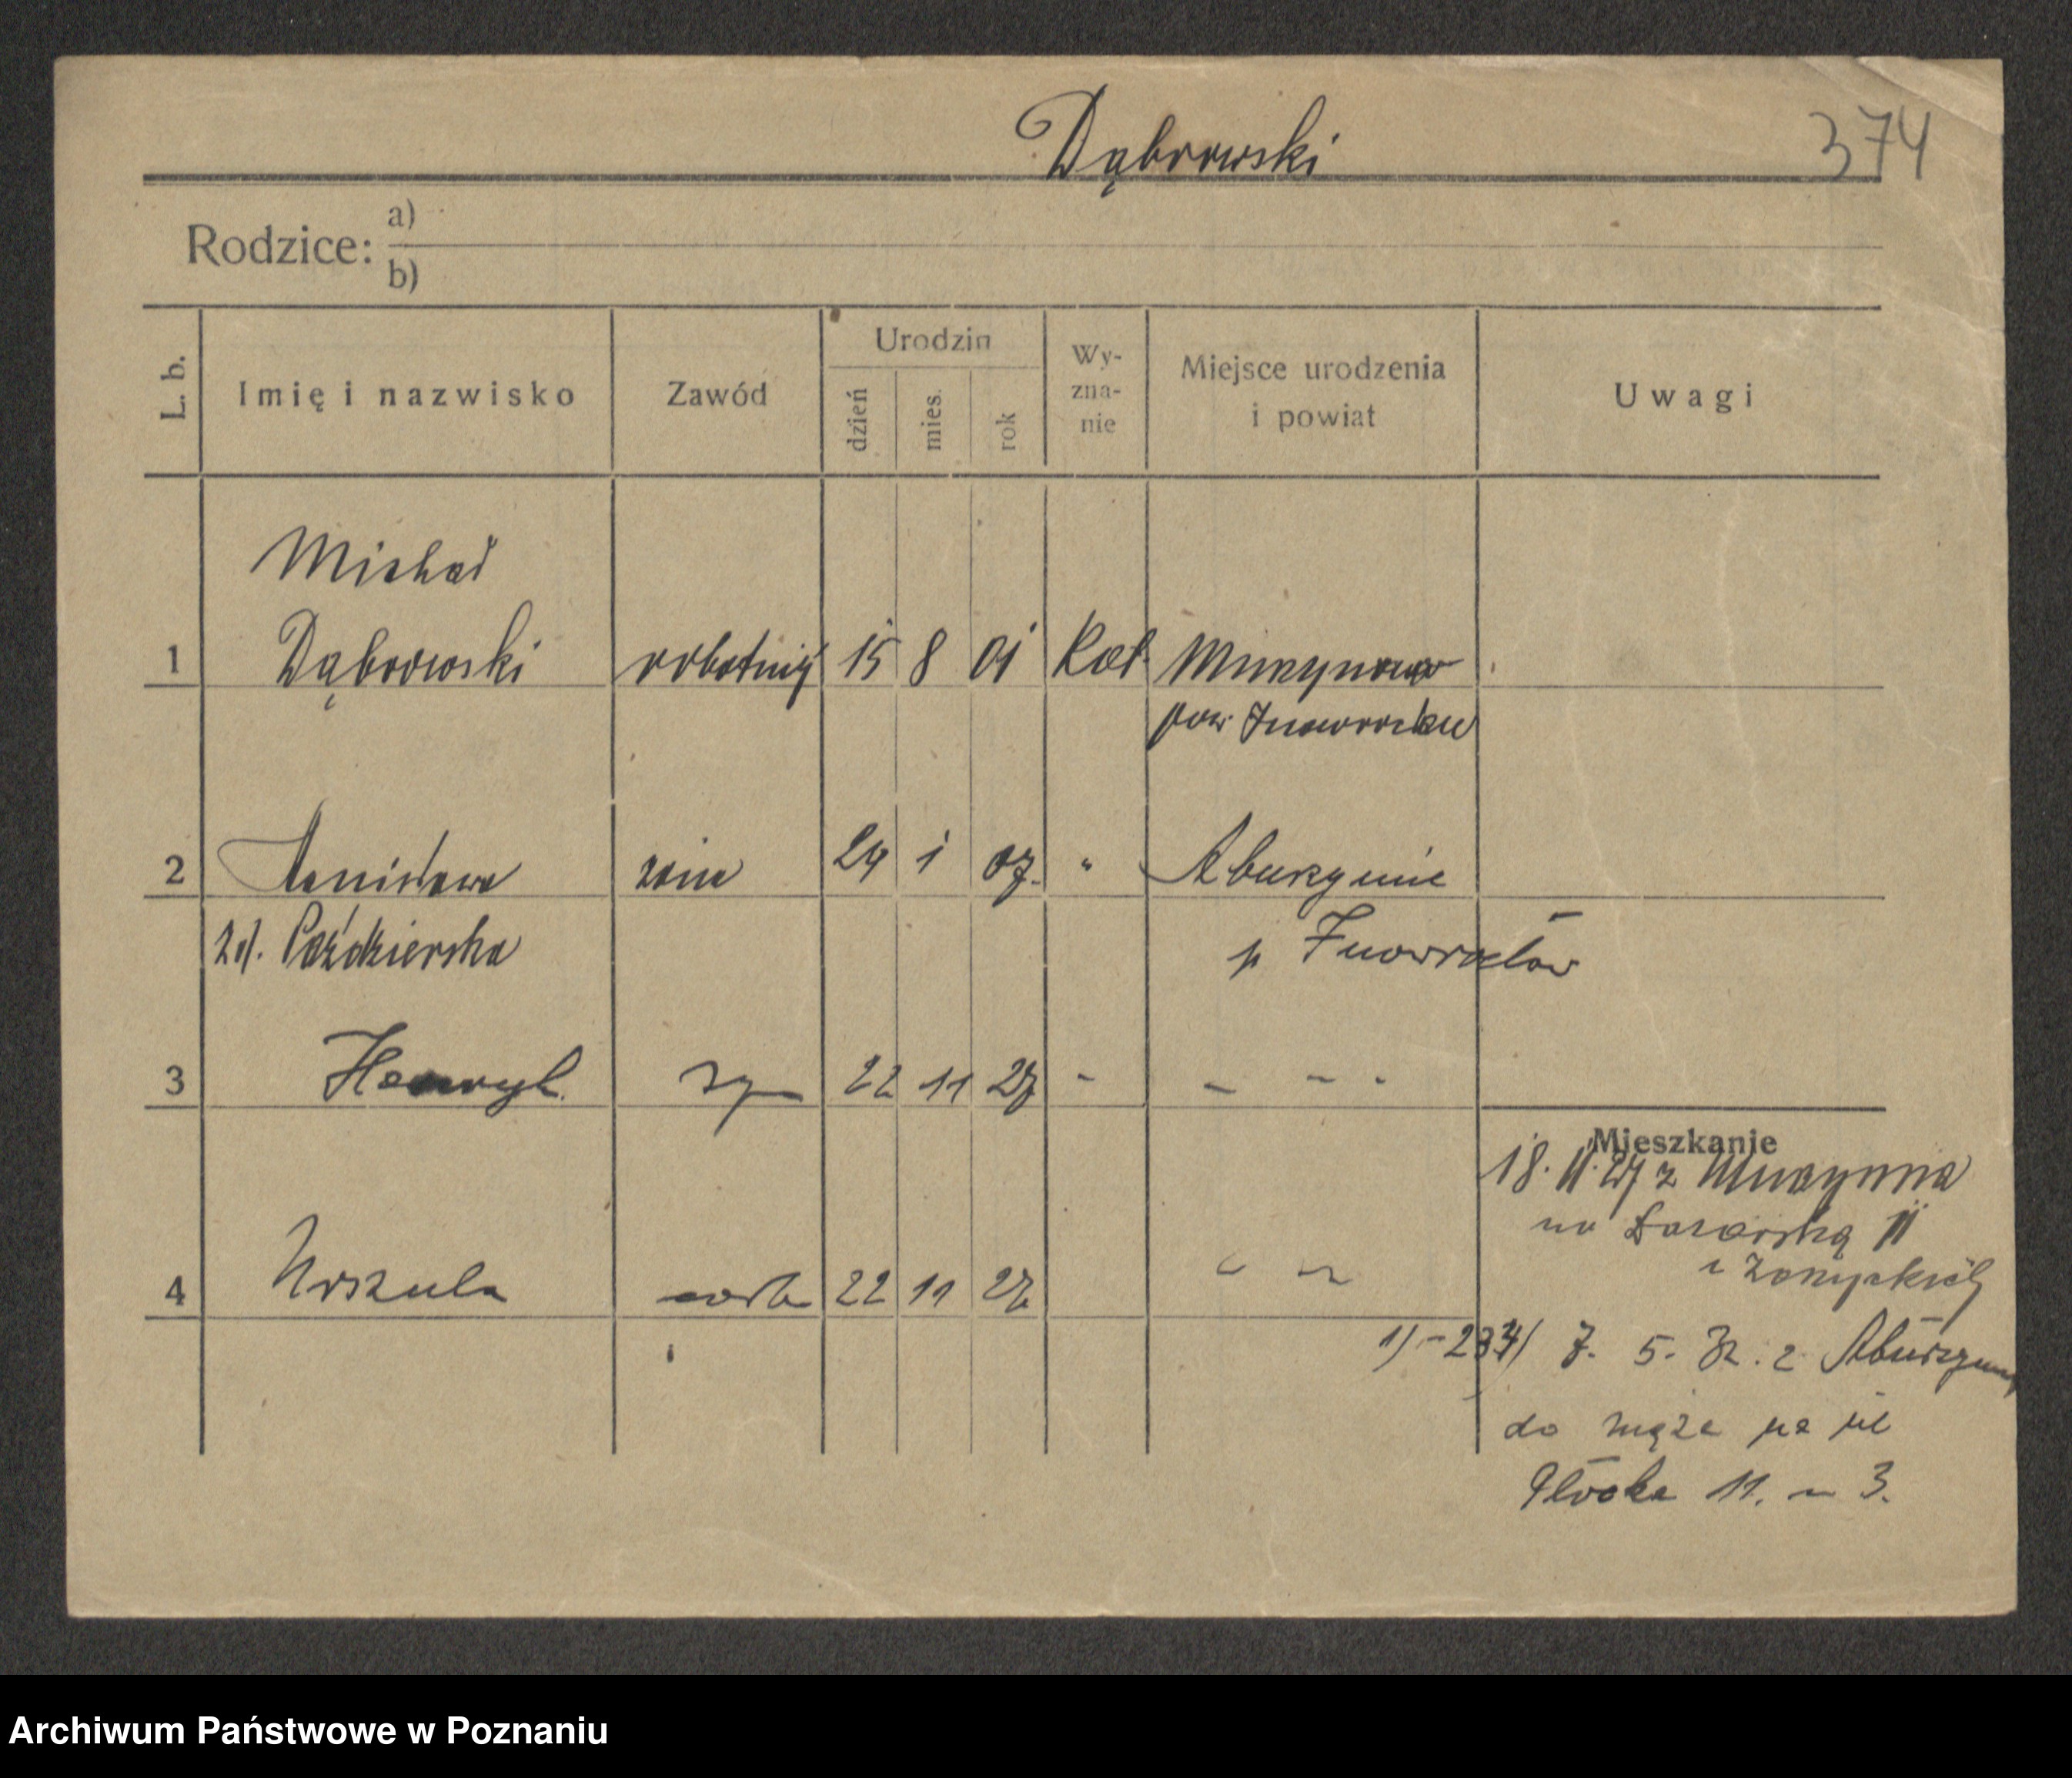 Dąbrowski
374
Rodzice: a)
b)
L. b.
Imię i nazwisko
Zawód
Urodzin
dzień
mies.
rok
Wy-
zna-
nie
Miejsce urodzenia
i powiat
Uwagi
Michał
1 Dąbrowski robotnik 15 8 01 Kat.
pow.
2 Stanisława żona 29 1 07. "
zd. Paździerska
p Inowrocław
3 Henryk syn 22 11 27 - - - -
Mieszkanie
18. 11. 27 z
na 11
4 Urszula córka 22 11 27
1) - 234) 7. 5. z
do męża na ul
Płocka 11. m 3.
Archiwum Państwowe w Poznaniu